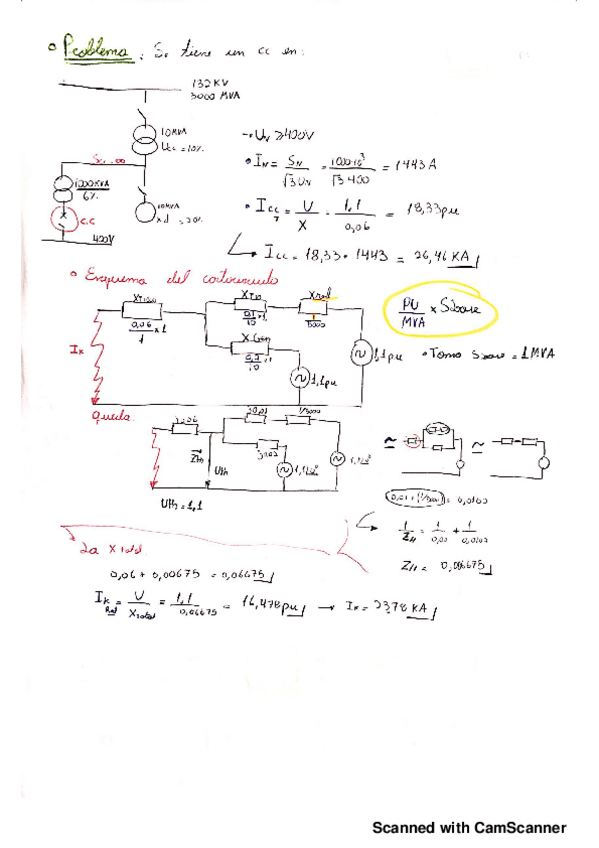 Problema. Se tiene un cc en:
132 KV
3000 MVA
10 MVA
Ucc = 10%
1000 KVA
6%
C.C
400V
10MVA
xd = 20%
→ UN ≥ 400V
• IN = SN / √3 UN = 1000·10³ / √3·400 = 1443 A
• Icc = U / X = 1,1 / 0,06 = 18,33 pu
Icc = 18,33 · 1443 = 26,46 KA
• Esquema del cortocircuito
XT1000
0,06 / 1 x 1
XT10
0,1 / 10 x 1
Xred
1 / 3000
X Gen
0,2 / 10 x 1
Ik
1,1 pu
1,1 pu
PU / MVA x Sbase
• Tomo Sbase = 1 MVA
queda.
0,06
0,01
1/3000
0,02
Zth
Uth
Uth = 1,1
≃
≃
0,01 + (1/3000) = 0,0103
1 / Z// = 1 / 0,02 + 1 / 0,0103
Z// = 0,006675
La X total
0,06 + 0,00675 = 0,06675
Ik Red = U / Xtotal = 1,1 / 0,06675 = 16,478 pu → Ik = 23,78 KA
Scanned with CamScanner